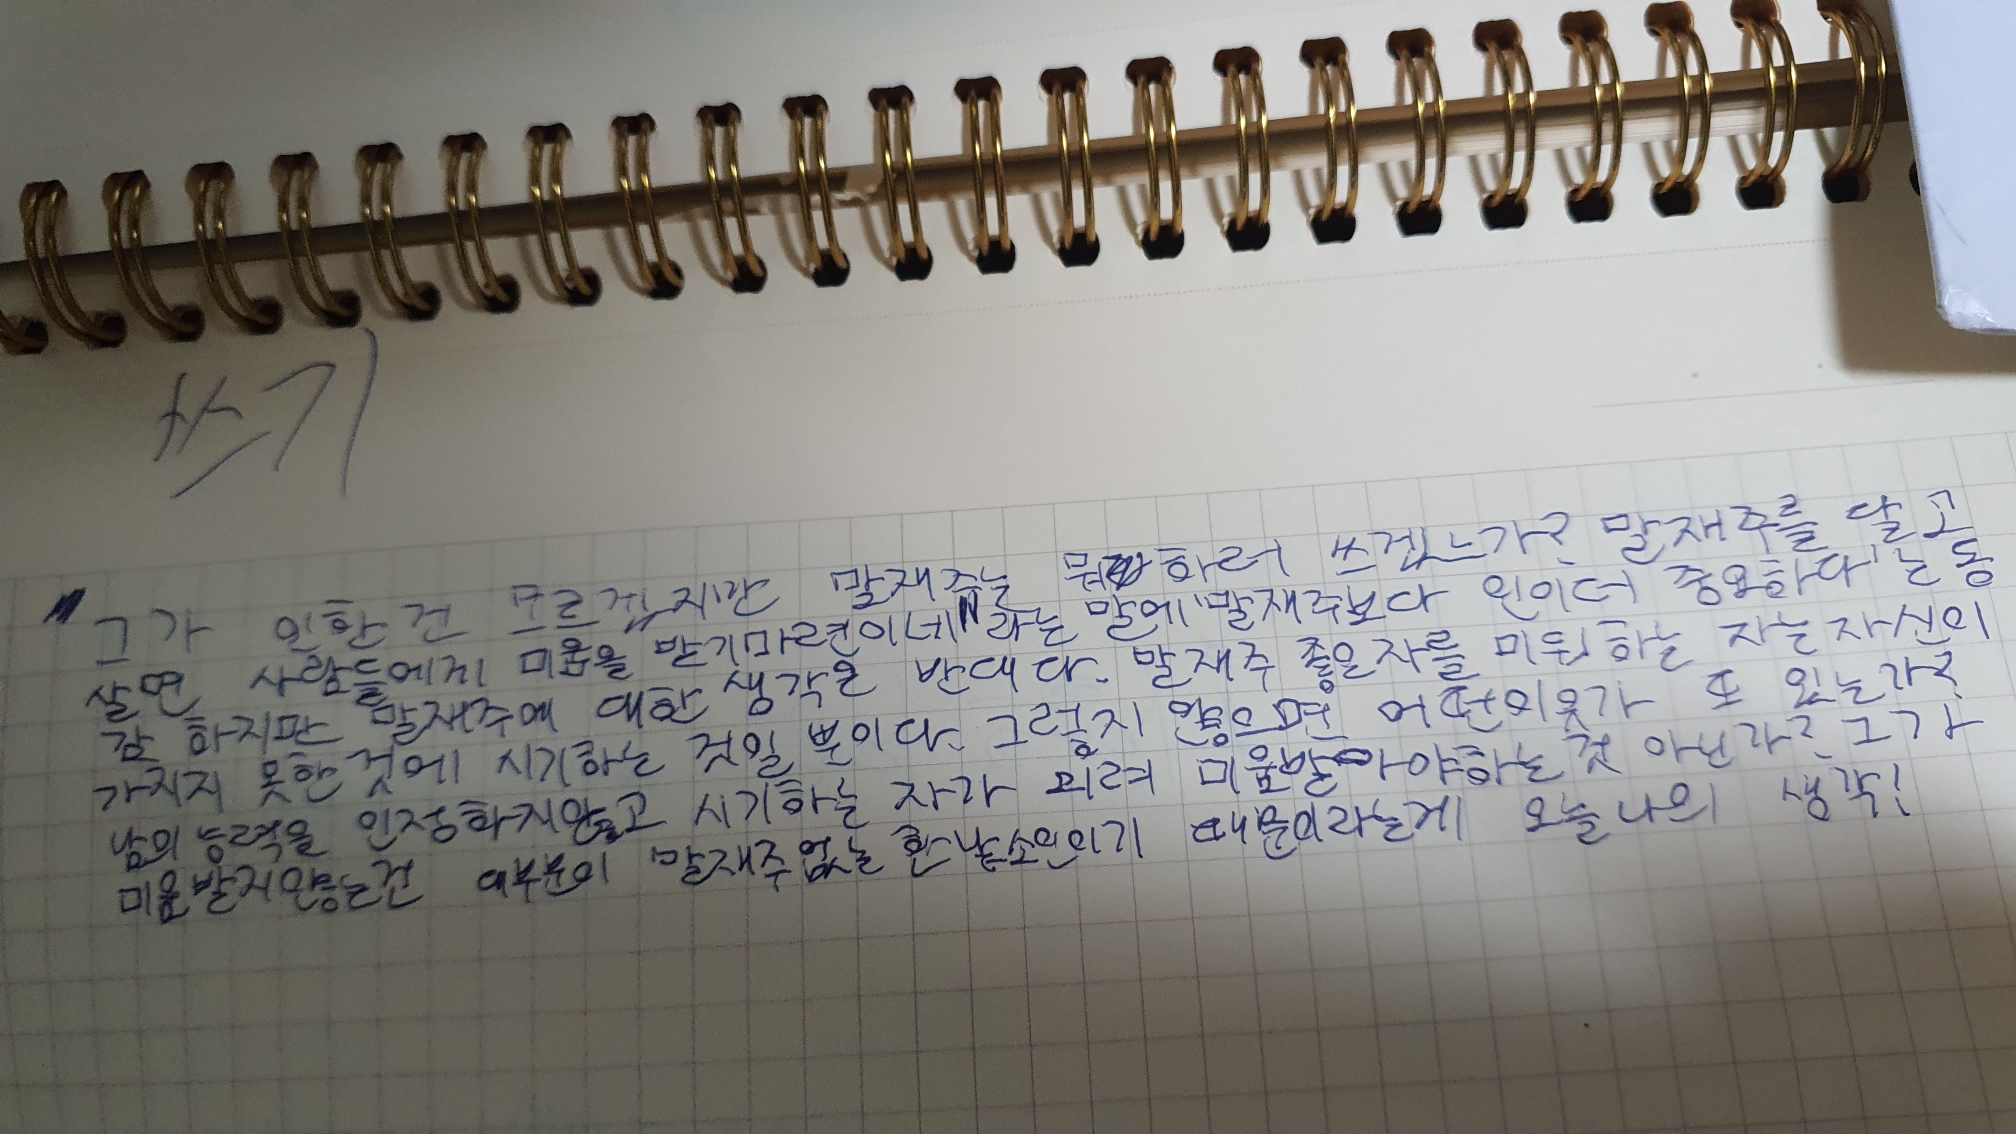 쓰기
"그가 인한 건 모르겠지만 말재주는 뭐 하러 쓰겠는가? 말재주를 달고
살면 사람들에게 미움을 받기마련이네"라는 말에 '말재주보다 인이 더 중요하다'는 동
감 하지만 말재주에 대한 생각은 반대다. 말재주 좋은자를 미워하는 자는 자신이
가지지 못한 것에 시기하는 것일 뿐이다. 그렇지 않으면 어떤이유가 또 있는가?
남의 능력을 인정하지않고 시기하는 자가 되려 미움받아야하는 것 아닌가? 그가
미움받지않는건 대부분이 말재주없는 한낱소인이기 때문이라는게 오늘 나의 생각!